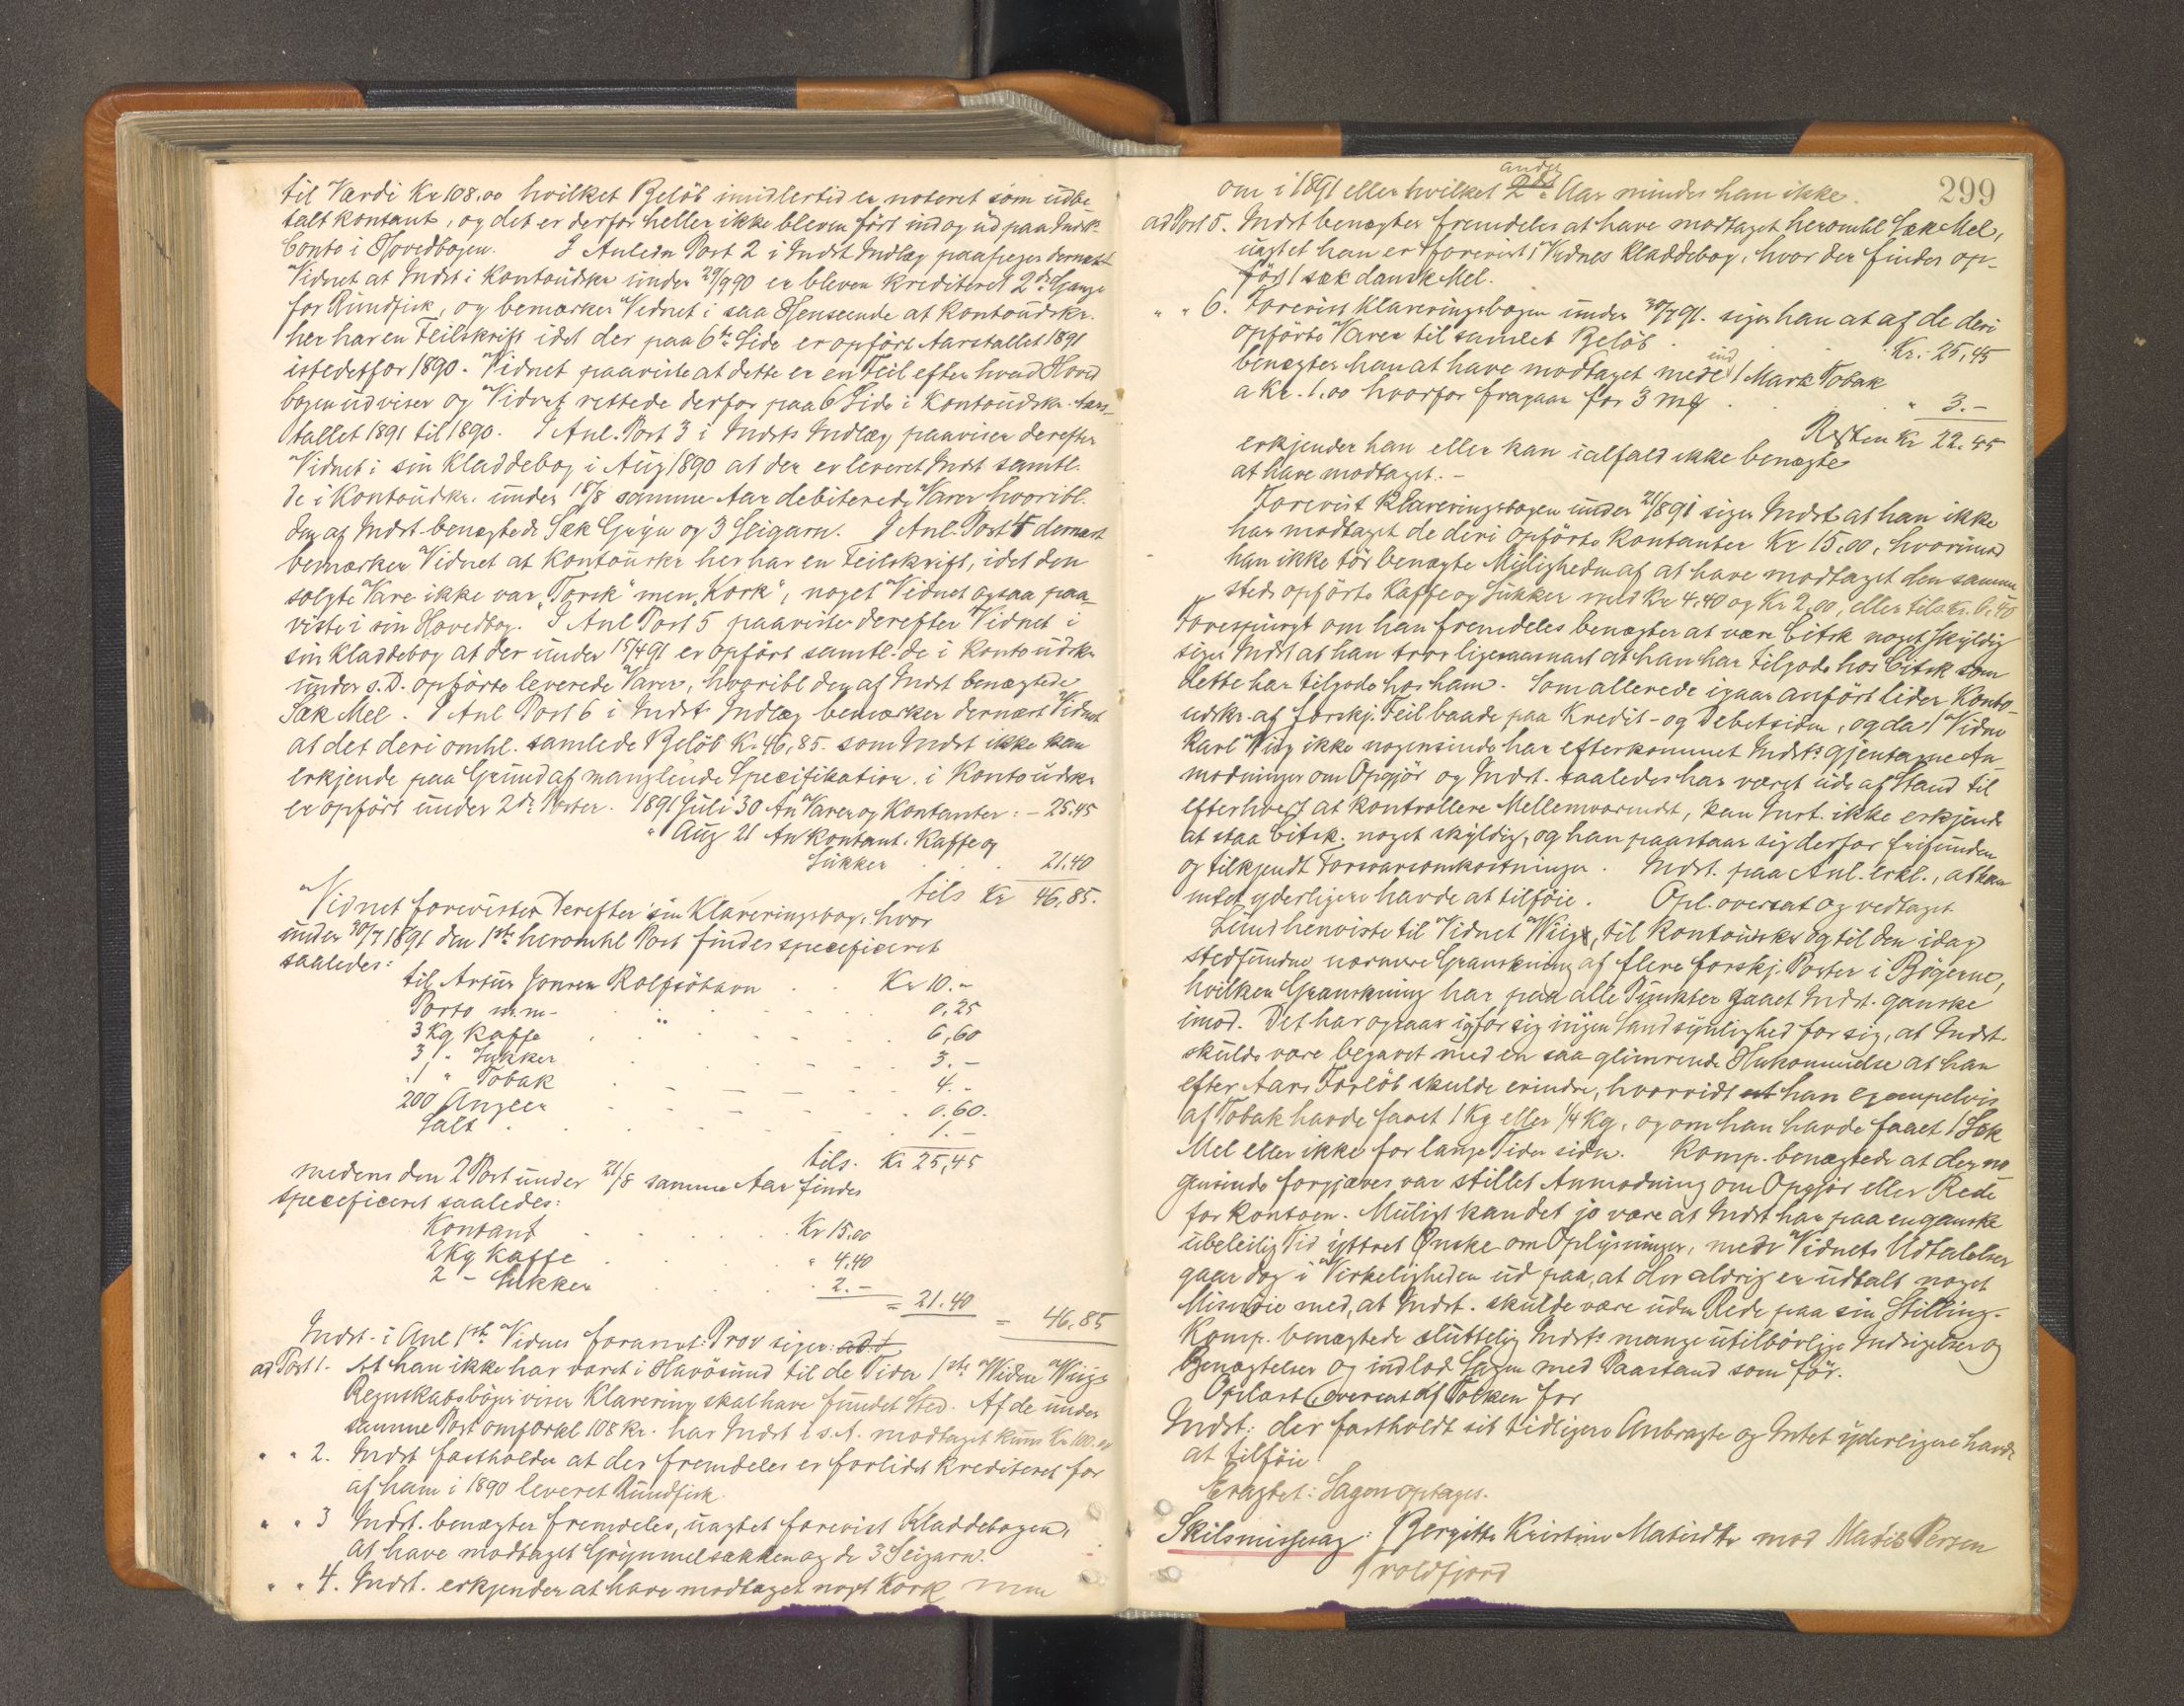 til Værdi Kr 108.00 hvilket Beløb imidlertid er noteret som udbe
talt kontant, og det er derfor heller ikke bleven ført ind og ud paa Indst.
Conto i Hovedbogen. I Anledn Post 2 i Indst Indlæg paapeger dernæst
Vidnet at Indst i Kontoudskr under 29/9 90 er bleven krediteret 2de Gange
for Rundfisk, og bemærker Vidnet i saa Henseende at Kontoudskr.
her har en Feilskrift idet der paa 6te Side er opført Aarstallet 1891
istedetfor 1890. Vidnet paaviste at dette er en Feil efter hvad Hoved
bogen udviser og Vidnet rettede derfor paa 6 Side i Kontoudskr. Aars-
tallet 1891 til 1890. I Anl. Post 3 i Indsts Indlæg paaviser derefter
Vidnet i sin Kladdebog i Aug 1890 at der er leveret Indst samtl.
de i Kontoudskr. under 16/8 samme Aar debiterede Varer hvoribl.
den af Indst benægtede Sæk Gryn og 3 Seigarn. I Anl. Post 4 dernæst
bemærker Vidnet at Kontoudskr her har en Feilskrift, idet den
solgte Vare ikke var "Torsk" men "Kork", noget Vidnet ogsaa paa-
viste i sin Hovedbog. I Anl Post 5 paaviste derefter Vidnet i
sin Kladdebog at der under 15/4 91 er opført samtl. de i Kontoudskr
under s. D. opførte leverede Varer, hvoribl den af Indst benægtede
Sæk Mel. I Anl Post 6 i Indsts Indlæg bemærker dernæst Vidnet
at det deri omhl. samlede Beløb Kr. 46,85. som Indst ikke kan
erkjende paa Grund af manglende Specifikation i Kontoudskr
er opført under 2de Poster. 1891 Juli 30 An Varer og Kontanter: - 25.45
" Aug 21 An Kontant. Kaffe og
Sukker 21.40
tils Kr 46.85.
Vidnet foreviste derefter sin Klareringsbog, hvor
under 30/7 1891 den 1ste heromhl Post findes specificeret
saaledes:
til Artur Jonsen Rolfsöhavn Kr 10.-
Porto m.m- 0,25
3 Kg Kaffe 6,60
3 " Sukker 3.-
1 " Tobak 4.-
200 Angler 0.60.
Salt 1.-
tils. Kr 25,45
medens den 2 Post under 21/8 samme Aar findes
specificeret saaledes:
Kontant Kr 15.00
2 Kg Kaffe " 4.40
2 - Sukker 2.-
= 21.40 = 46.85
Indst. i Anl 1ste Vidnes foranst. Prov siger: ad 1
ad Post 1. At han ikke har været i Havösund til de Tider 1ste Vidne Wiigs
Regnskabsbøger viser Klarering skal have fundet Sted. Af de under
samme Post omforkl 108 kr. har Indst i s. A. modtaget kuns Kr 100.00
" " 2. Indst fastholder at der fremdeles er forlidet krediteret for
af ham i 1890 leveret Rundfisk.
" " 3 Indst. benægter fremdeles, uagtet forevist Kladdebogen,
at have modtaget Grynmelsækken og de 3 Seigarn.
" " 4. Indst. erkjender at have modtaget noget Kork men
299
andet
om i 1891 eller hvilket 2det Aar mindes han ikke.
ad Post 5. Indst benægter fremdeles at have modtaget heromhl Sæk Mel,
uagtet han er forevist 1 Vidnes Kladdebog, hvor der findes op-
ført 1 sæk dansk Mel.
" " 6. Forevist Klareringsbogen under 30/7 91. siger han at af de deri
opførte Varer til samlet Beløb Kr. 25,45
ind
benægter han at have modtaget mere 1 Mark Tobak
a Kr. 1.00 hvorfor fragaar for 3 mg " 3.-
Resten Kr 22.45
erkjender han eller kan ialfald ikke benægte
at have modtaget.-
Forevist Klareringsbogen under 21/8 91 siger Indst at han ikke
har modtaget de deri opførte kontanter Kr 15.00, hvorimod
han ikke tör benægte Muligheden af at have modtaget den samme
steds opførte Kaffe og Sukker med Kr 4.40 og Kr 2.00, eller tils Kr. 6.40
Forespurgt om han fremdeles benægter at være Citsk noget skyldig
siger Indst at han tror ligesaasnart at han har tilgode hos Citsk som
dette har tilgode hos ham. Som allerede igaar anført lider Konto-
udskr. af forskj. Feil baade paa Kredit- og Debetsiden, og da 1 Vidne
Karl Wiig ikke nogensinde har efterkommet Indsts gjentagne An-
modninger om Opgjör og Indst. saaledes har været ude af Stand til
efterhvert at kontrollere Mellemværendet, kan Indst. ikke erkjende
at staa Citsk. noget skyldig, og han paastaar sig derfor frifunden
og tilkjendt Forsvarsomkostninger. Indst. paa Anl. erkl., at han
intet yderligere havde at tilføie. Opl. oversat og vedtaget
Lund henviste til Vidnet Wiig, til Kontoudskr og til den idag
stedfundne nærmere Granskning af flere forskj. Poster i Bøgerne,
hvilken Granskning har paa alle Punkter gaaet Indst. ganske
imod. Det har ogsaa i og for sig ingen Sandsynlighed for sig, at Indst.
skulde være begavet med en saa glimrende Hukommelse at han
efter Aars Forløb skulde erindre, hvorvidt at han exempelvis
af Tobak havde faaet 1 Kg eller 1/4 Kg, og om han havde faaet 1 Sæk
Mel eller ikke for lange Tider siden. Komp. benægtede at der no
gensinde forgjæves var stillet Anmodning om Opgjör eller Rede
for Kontoen. Muligt kan det jo være at Indst har paa en ganske
ubeleilig Tid yttret Ønske om Oplysninger, men Vidnets Udtalelser
gaar dog i Virkeligheden ud paa, at der aldrig er udtalt noget
Misnøie med, at Indst. skulde være uden Rede paa sin Stilling.
Komp. benægtede sluttelig Indsts mange utilbørlige Indsigelser og
Benægtelser og indlod Sagen med Paastand som før.
Oplæst (oversat af Tolken for
Indst: der fastholdt sit tidligere Anbragte og Intet yderligere havde
at tilføie
Eragtet: Sagen optages.
Skilsmissesag: Bergitte Kristine Matisdtr mod Mathis Persen